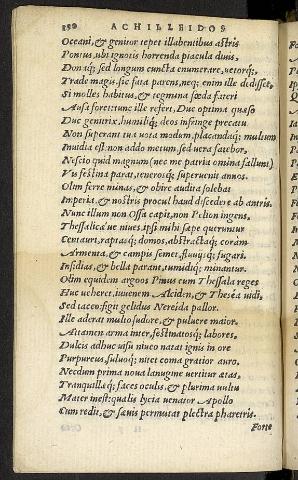 150 ACHILLEIDOS
Oceani, & genitor tepet illabentibus astris
Pontus, ubi ignotis horrenda piacula divis,
Donaq; sed longum cuncta enumerare, vetorq;,
Trade magis. sic fata parens, neq; enim ille dedisset,
Si molles habitus, & tegmina fœda fateri
Ausa foret. tunc ille refert, Duc optima quæso
Duc genitrix, humiliq; deos infringe precatu.
Non superant tua vota modum, placandaq; multum
Invidia est. non addo metum, sed vera fatebor,
Nescio quid magnum (nec me patria omina fallunt)
Vis festina parat, tenerosq; supervenit annos.
Olim ferre minas, & obire audita solebat
Imperia, & nostris procul haud discedere ab antris.
Nunc illum non Ossa capit, non Pelion ingens,
Thessalicæ ve nives. ipsi mihi sæpe queruntur
Centauri, raptasq; domos, abstractaq; coram
Armenta, & campis semet, fluviisq; fugari.
Insidias, & bella parant, tumidiq; minantur.
Olim equidem argoos Pinus cum Thessala reges
Huc veheret, iuvenem Alciden, & Thesea vidi,
Sed taceo: figit gelidus Nereida pallor.
Ille aderat multo sudore, & pulvere maior.
Attamen arma inter, festinatosq; labores,
Dulcis adhuc visu niveo natat ignis in ore
Purpureus, fuluoq; nitet coma gratior auro.
Necdum prima nova lanugine vertitur ætas,
Tranquillæq; faces oculis, & plurima vultu
Mater inest: qualis lycia venator Apollo
Cum redit, & sævis permutat plectra pharetris.
Forte